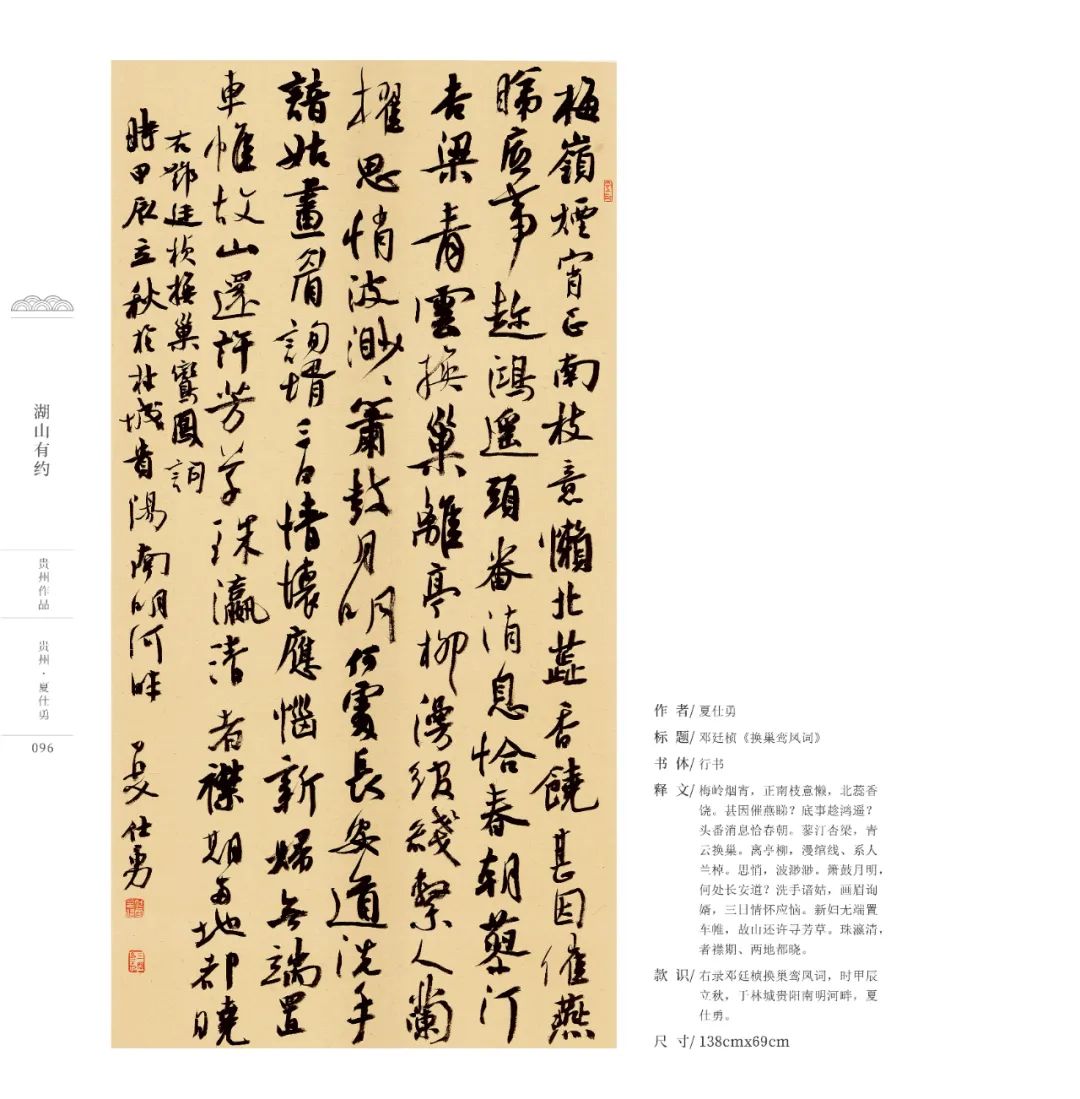 梅嶺煙宵正南枝意懶北蕋香饒甚因催燕
睇底事趂鴻遥頭番消息恰春朝蓼汀
杏梁青雲換巢離亭柳漫綰綫繫人蘭
擢思悄波渺〻簫鼓月明何處長安道洗手
諳姑畫眉詢壻三日情懷應惱新婦無端置
車帷故山還許芳草珠瀛清者襟期兩地都曉
右鄧廷楨換巢鸞鳳詞
時甲辰立秋於林城貴陽南明河畔 夏仕勇
湖山有约
贵州作品
贵州·夏仕勇
096
作 者/ 夏仕勇
标 题/ 邓廷桢《换巢鸾凤词》
书 体/ 行书
释 文/ 梅岭烟宵，正南枝意懒，北蕊香
饶。甚因催燕睇？底事趁鸿遥？
头番消息恰春朝。蓼汀杏梁，青
云换巢。离亭柳，漫绾线、系人
兰棹。思悄，波渺渺。箫鼓月明，
何处长安道？洗手谙姑，画眉询
婿，三日情怀应恼。新妇无端置
车帷，故山还许寻芳草。珠瀛清，
者襟期、两地都晓。
款 识/ 右录邓廷桢换巢鸾凤词，时甲辰
立秋，于林城贵阳南明河畔，夏
仕勇。
尺 寸/ 138cmx69cm